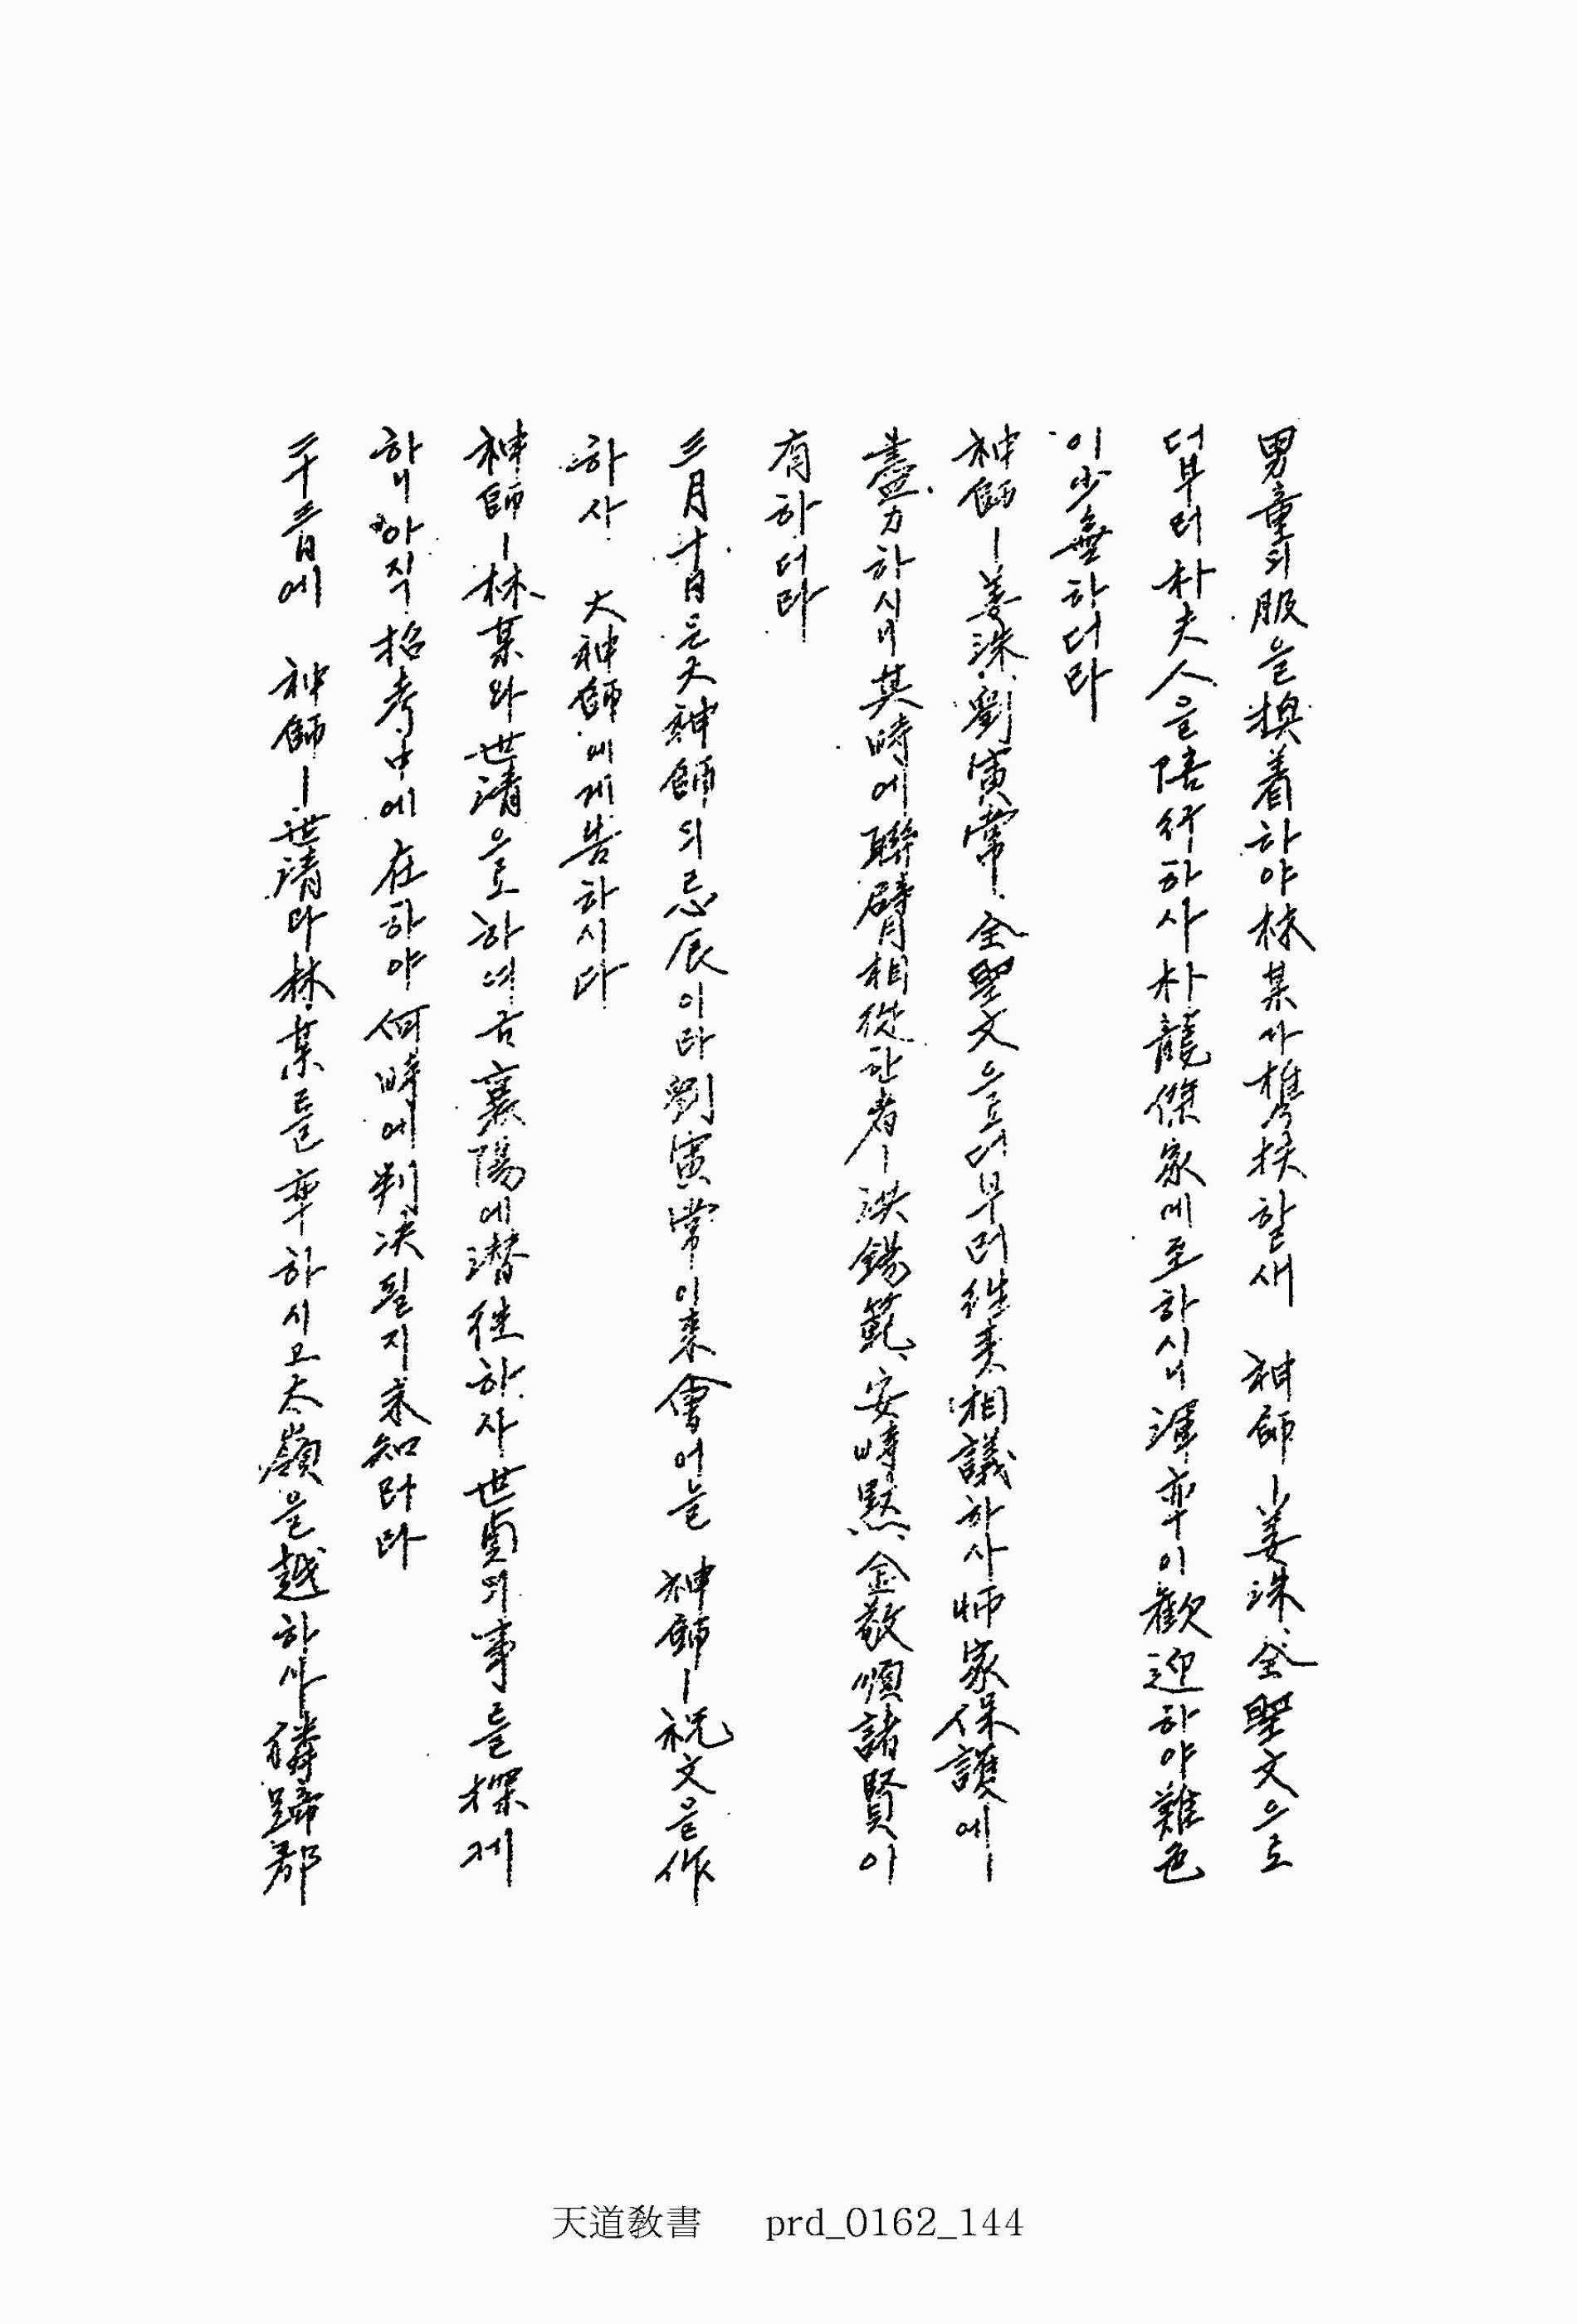 男童의服을換着하야林某가携扶할새 神師ㅣ姜洙、全聖文으로
더부러朴夫人을陪行하사朴龍傑家에至하시니渾率이歡迎하야難色
이少無하더라
神師ㅣ姜洙、劉寅常、全聖文으로더부러往來相議하사師家保護에
盡力하시니其時에聯臂相從한者ㅣ洪錫範、安時黙、金敬順諸賢이
有하더라
三月十日은大神師의忌辰이라劉寅常이來會어늘 神師ㅣ祝文을作
하사 大神師에게告하시다
神師ㅣ林某와世淸으로하여금襄陽에潛往하사世貞의事를探제
하니아직招考中에在하야何時에判決될지未知라라
二十三日에 神師ㅣ世淸과林某를率하시고太嶺을越하사麟蹄郡
天道敎書 prd_0162_144